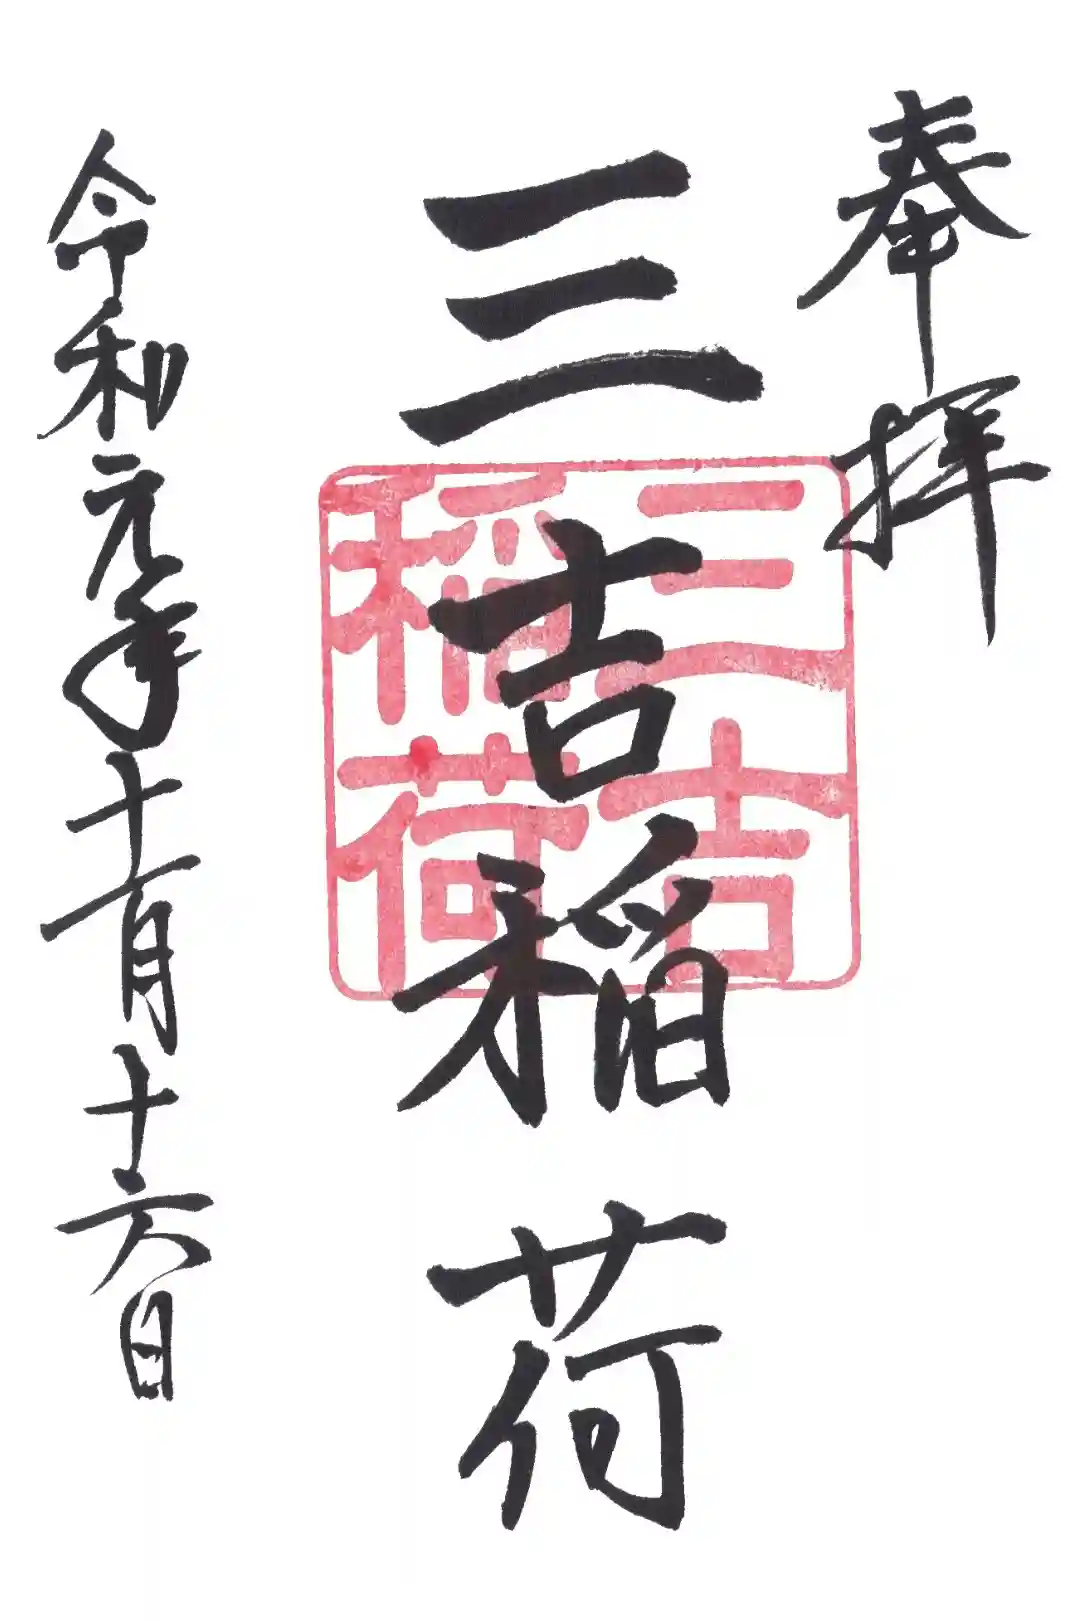 奉拝
三吉稲荷
三吉
稲荷
令和元年十一月十六日